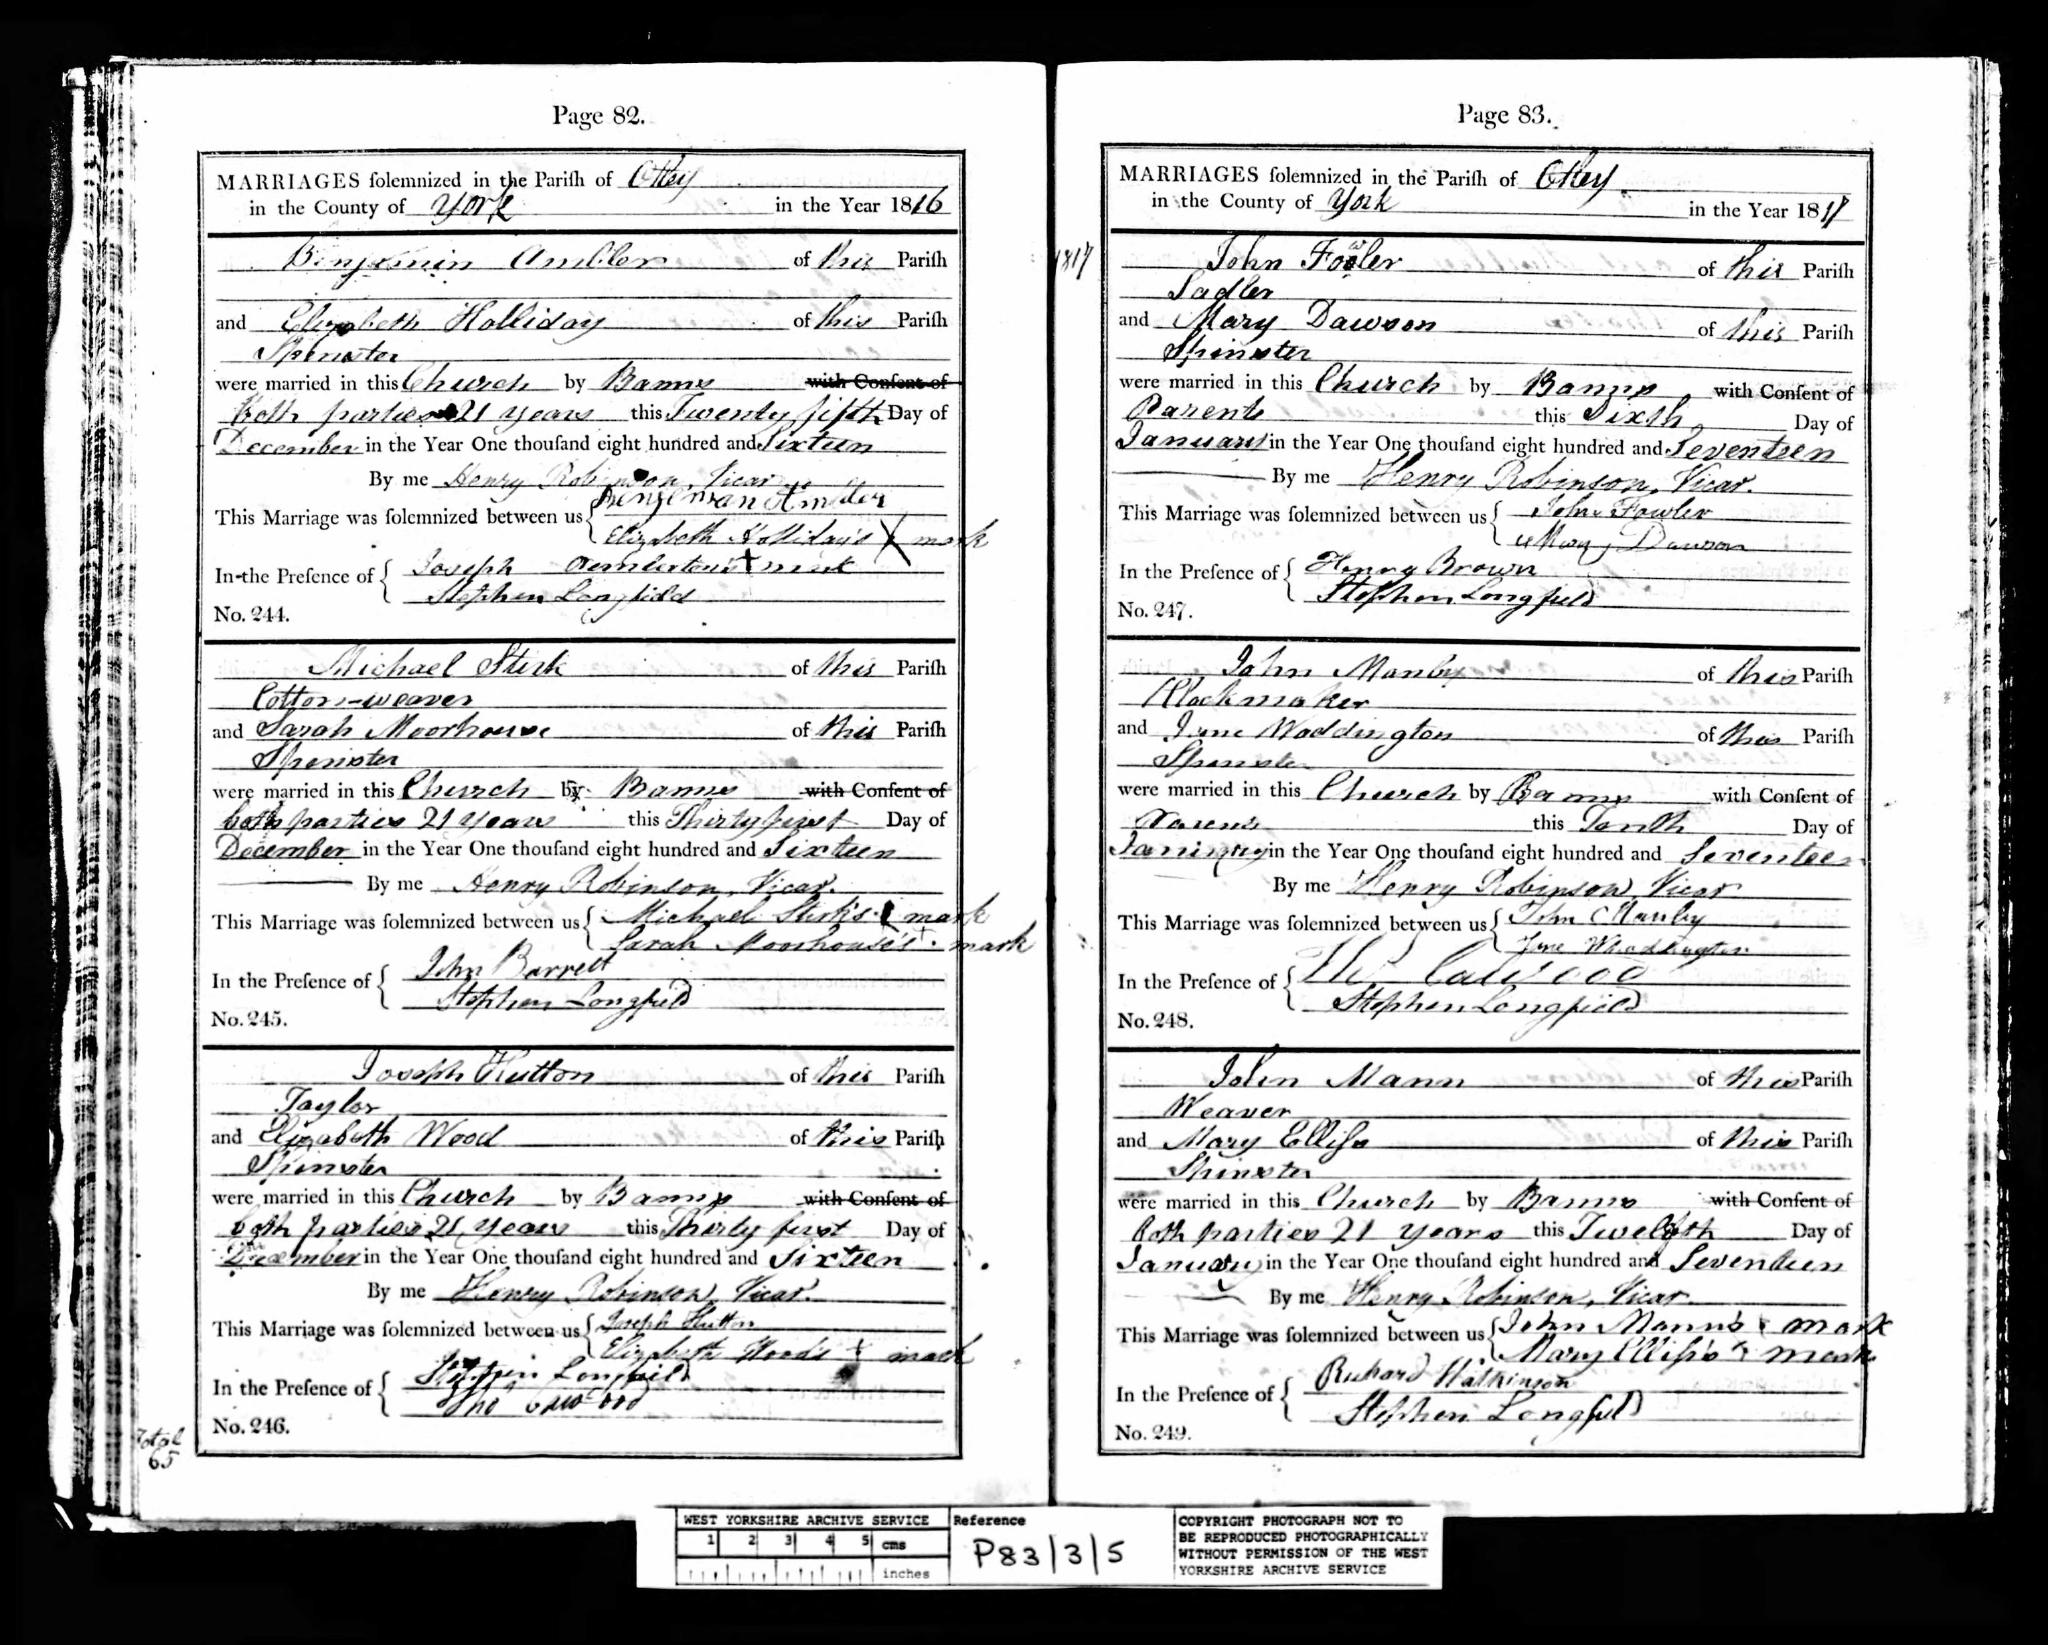 Page 82.
MARRIAGES solemnized in the Parish of Otley
in the County of York in the Year 1816
Benjamin Ambler of this Parish
and Elizabeth Holliday of this Parish
Spinster
were married in this Church by Banns with Consent of
both parties 21 years this Twenty fifth Day of
December in the Year One thousand eight hundred and Sixteen
By me Henry Robinson, Vicar
This Marriage was solemnized between us Benjeman Ambler
Elizabeth Holliday's X mark
In the Presence of Joseph + mark
Stephen Longfield
No. 244.
Michael Stirk of this Parish
Cotton-weaver
and Sarah Moorhouse of this Parish
Spinster
were married in this Church by Banns with Consent of
both parties 21 years this Thirty first Day of
December in the Year One thousand eight hundred and Sixteen
By me Henry Robinson, Vicar.
This Marriage was solemnized between us Michael Stirk's mark
Sarah Moorhouse's + mark
In the Presence of John Barrett
Stephen Longfield
No. 245.
Joseph Hutton of this Parish
Taylor
and Elizabeth Wood of this Parish
Spinster
were married in this Church by Banns with Consent of
both parties 21 years this Thirty first Day of
December in the Year One thousand eight hundred and Sixteen
By me Henry Robinson, Vicar.
This Marriage was solemnized between us Joseph Hutton
Elizabeth Wood's + mark
In the Presence of Stephen Longfield
Tho Cawood
No. 246.
Total
65
Page 83.
MARRIAGES solemnized in the Parish of Otley
in the County of York in the Year 1817
1817
John Fowler of this Parish
Sadler
and Mary Dawson of this Parish
Spinster
were married in this Church by Banns with Consent of
Parents this Sixth Day of
January in the Year One thousand eight hundred and Seventeen
By me Henry Robinson, Vicar.
This Marriage was solemnized between us John Fowler
Mary Dawson
In the Presence of Henry Brown
Stephen Longfield
No. 247.
John Manby of this Parish
Clockmaker
and Jane Waddington of this Parish
Spinster
were married in this Church by Banns with Consent of
Parents this Tenth Day of
January in the Year One thousand eight hundred and Seventeen
By me Henry Robinson, Vicar
This Marriage was solemnized between us John Manby
Jane Waddington
In the Presence of Cawood
Stephen Longfield
No. 248.
John Mann of this Parish
Weaver
and Mary Elliss of this Parish
Spinster
were married in this Church by Banns with Consent of
both parties 21 years this Twelfth Day of
January in the Year One thousand eight hundred and Seventeen
By me Henry Robinson, Vicar.
This Marriage was solemnized between us John Mann's + mark
Mary Elliss's + mark
In the Presence of Richard Watkinson
Stephen Longfield
No. 249.
WEST YORKSHIRE ARCHIVE SERVICE
1 2 3 4 5 cms
inches
Reference
P83/3/5
COPYRIGHT PHOTOGRAPH NOT TO
BE REPRODUCED PHOTOGRAPHICALLY
WITHOUT PERMISSION OF THE WEST
YORKSHIRE ARCHIVE SERVICE